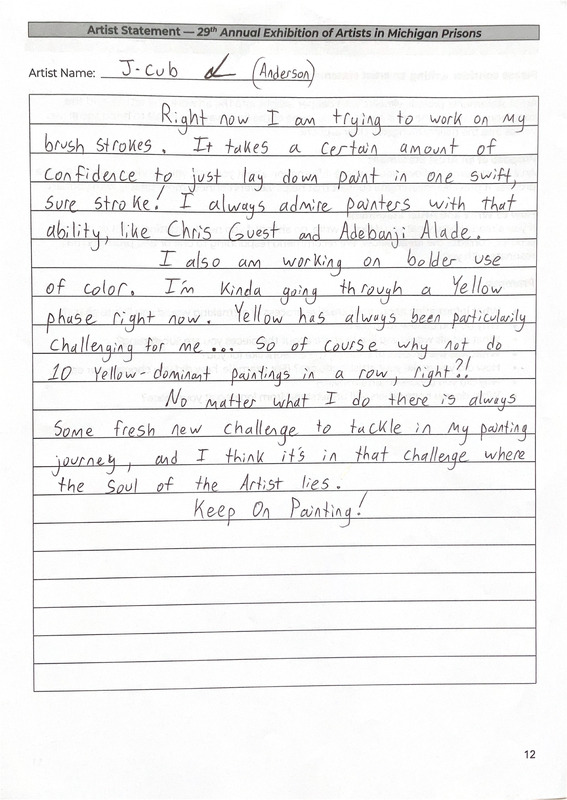 Artist Statement — 29th Annual Exhibition of Artists in Michigan Prisons
Artist Name: J-cub (Anderson)
Right now I am trying to work on my
brush strokes. It takes a certain amount of
confidence to just lay down paint in one swift,
sure stroke! I always admire painters with that
ability, like Chris Guest and Adebanji Alade.
I also am working on bolder use
of color. I'm kinda going through a Yellow
phase right now. Yellow has always been particularily
challenging for me... So of course why not do
10 Yellow-dominant paintings in a row, right?!
No matter what I do there is always
some fresh new challenge to tackle in my painting
journey, and I think it's in that challenge where
the Soul of the Artist lies.
Keep On Painting!
12